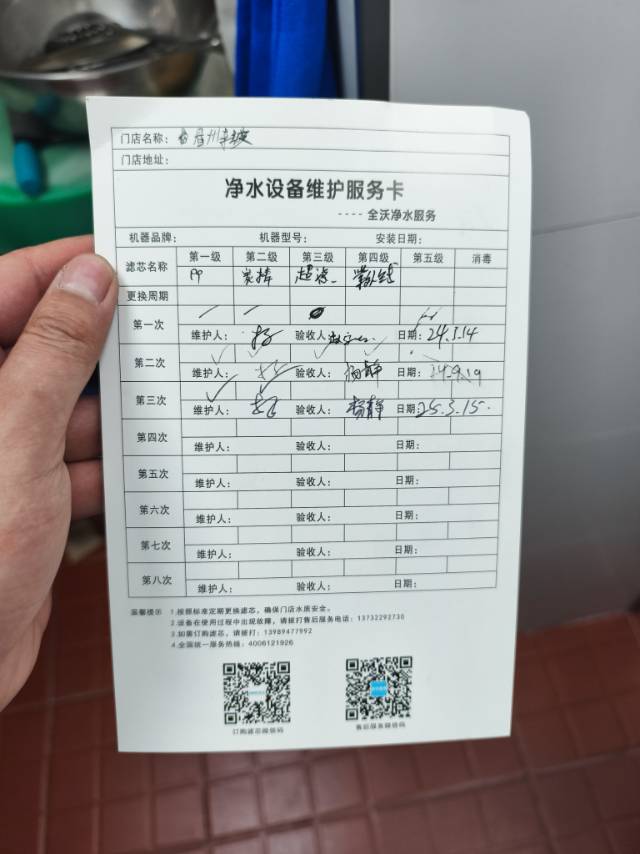 门店名称：
门店地址：
净水设备维护服务卡
---- 全沃净水服务
机器品牌： 机器型号： 安装日期：
滤芯名称 第一级 第二级 第三级 第四级 第五级 消毒
PP 炭棒 超滤
更换周期
第一次
维护人： 验收人： 日期：24.3.14
第二次
维护人： 验收人：杨静 日期：24.9.19
第三次
维护人： 验收人：杨静 日期：25.3.15.
第四次
维护人： 验收人： 日期：
第五次
维护人： 验收人： 日期：
第六次
维护人： 验收人： 日期：
第七次
维护人： 验收人： 日期：
第八次
维护人： 验收人： 日期：
温馨提示 1.按照标准定期更换滤芯，确保门店水质安全。
2.设备在使用过程中出现故障，请拨打售后服务电话：13732292730
3.如需订购滤芯，请拨打：13989477992
4.全国统一服务热线：4006121926
订购滤芯微信码 售后服务微信码